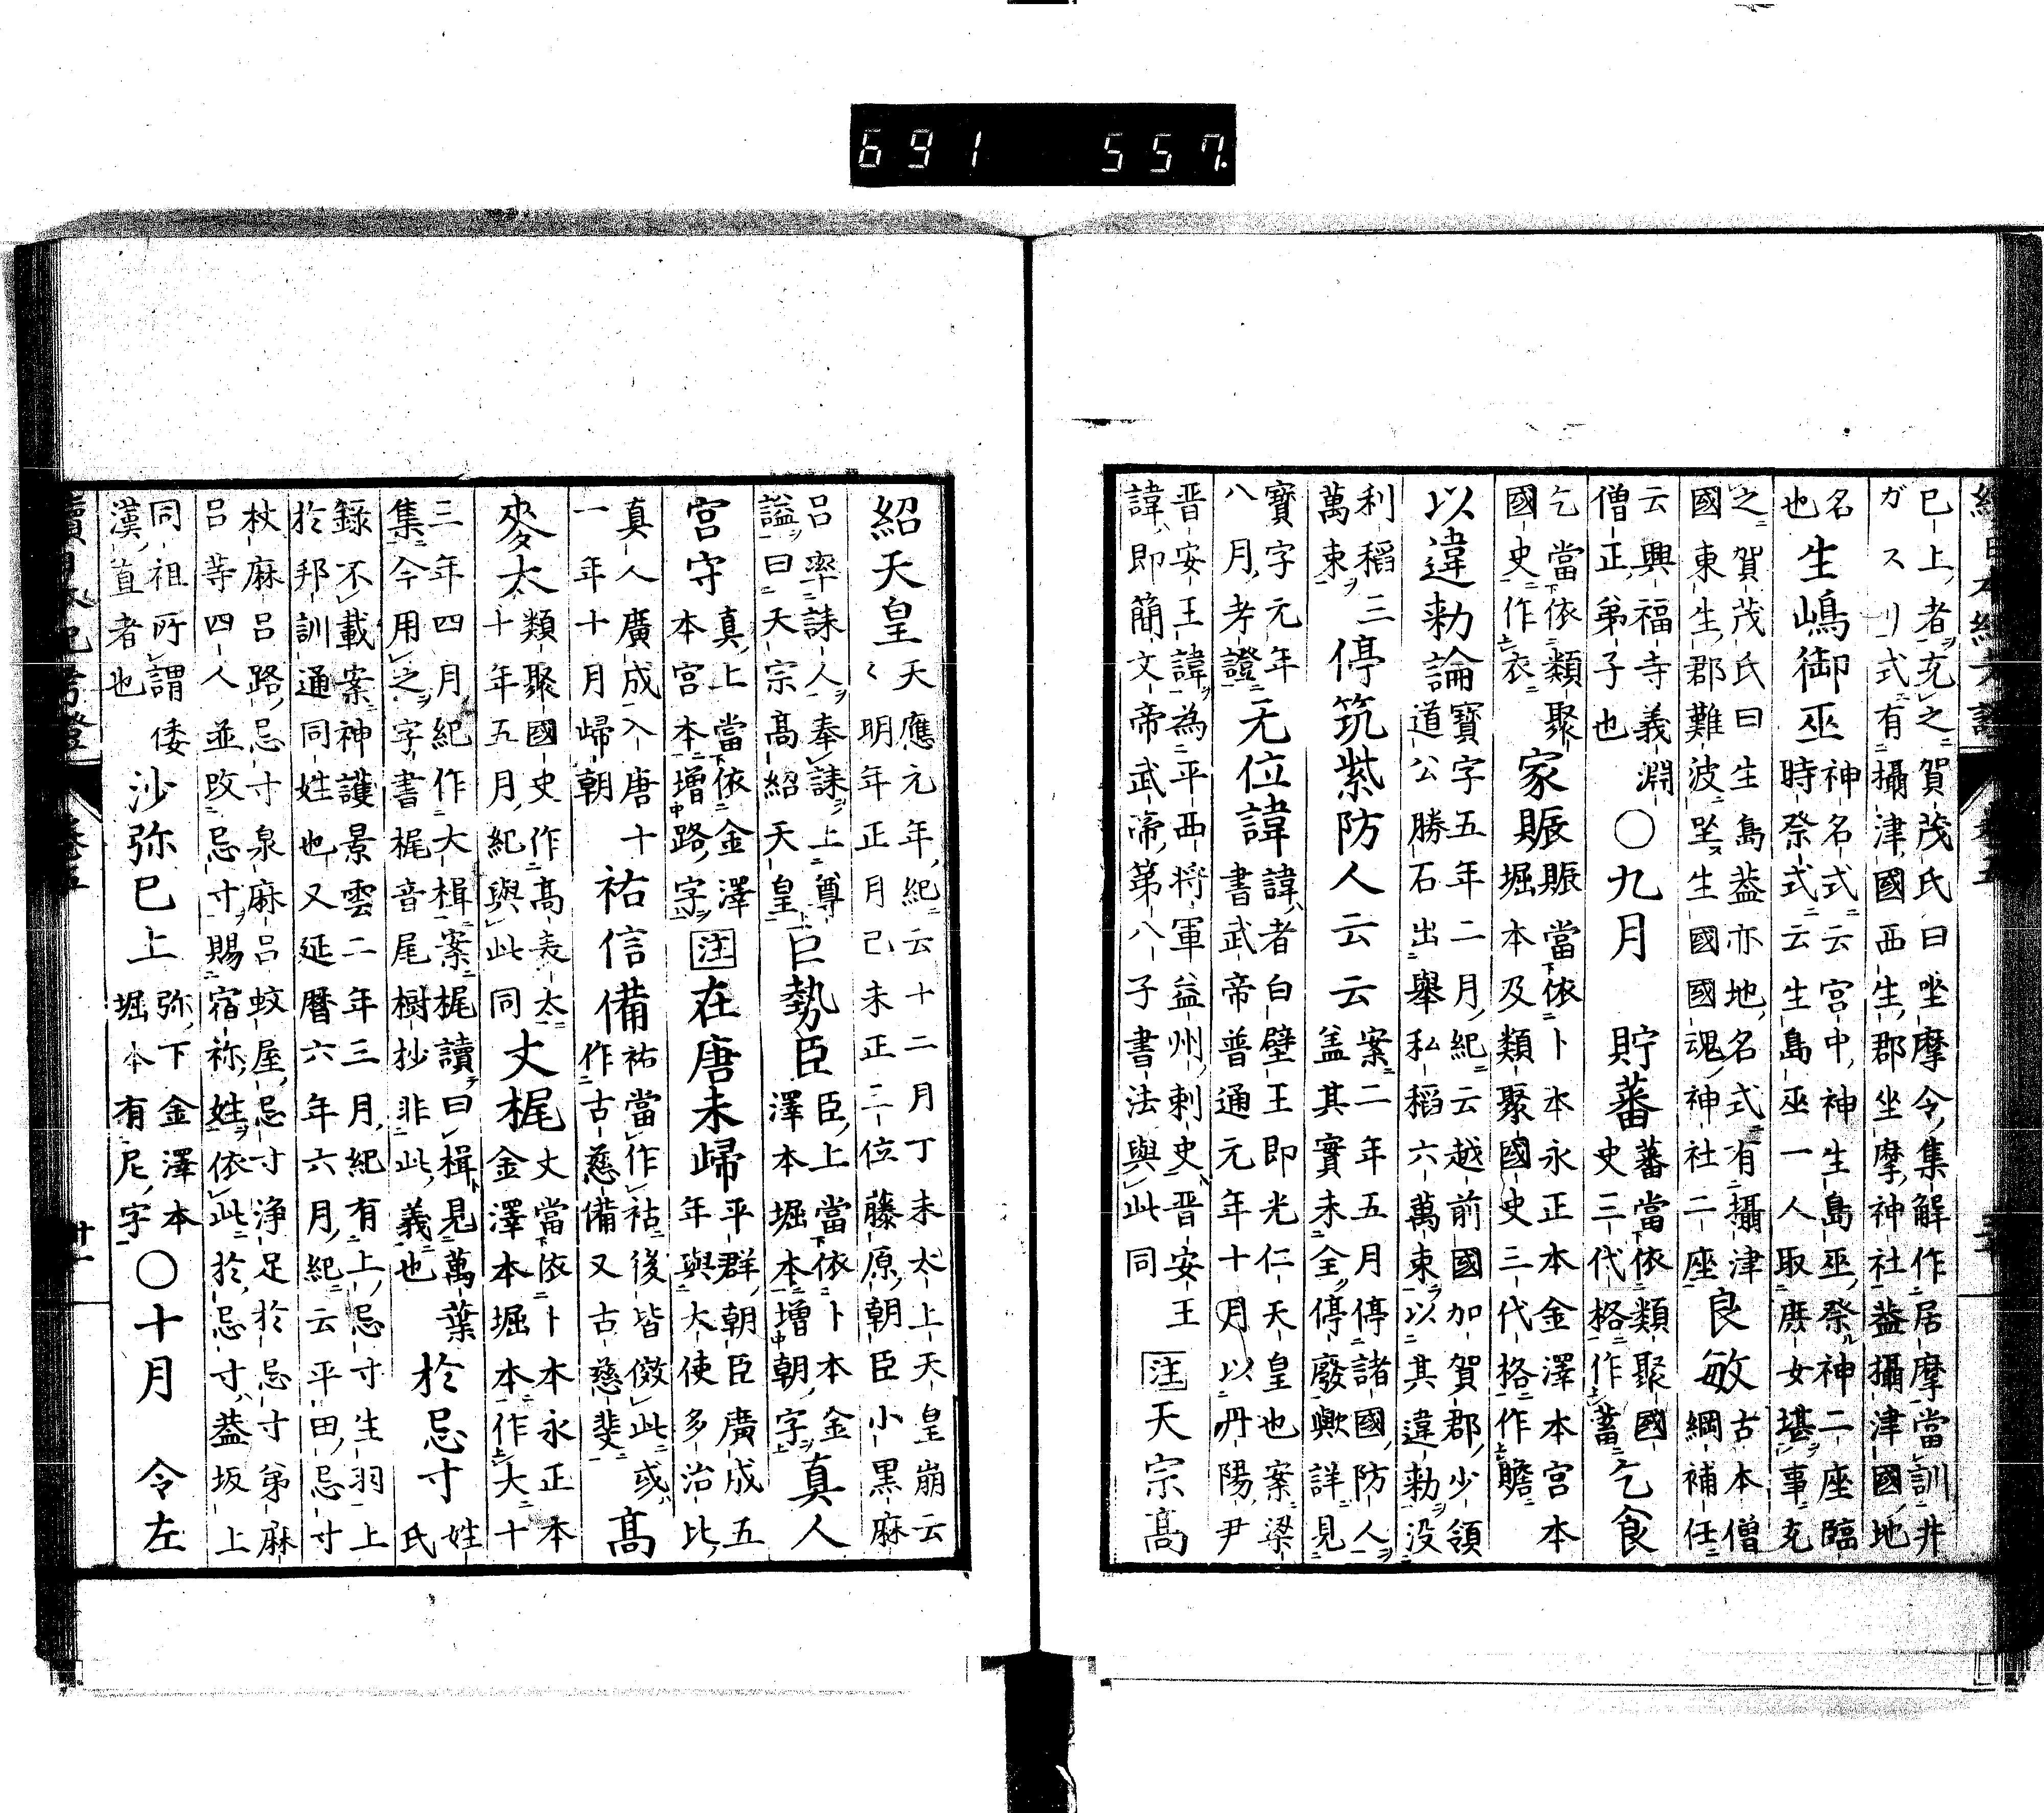 691 557
已上者充之賀茂氏曰坐摩令集解作居摩當訓非
ガスリ式有攝津國西生郡坐摩神社蓋攝津國地
名也
生嶋御巫
神名式云宮中神生島巫祭神二座臨
時祭式云生島巫一人取庶女堪事充
之賀茂氏曰生島蓋亦地名式有攝津
國東生郡難波坐生國國魂神社二座
良敏
古本僧
綱補任
云興福寺義淵
僧正弟子也
○九月
貯蕃
蕃當依類聚國
史三代格作蓄
乞食
乞當依類聚
國史作衣
家賑
賑當依卜本永正本金澤本宮本
堀本及類聚國史三代格作贍
以違勅論
寶字五年二月紀云越前國加賀郡少領
道公勝石出擧私稻六萬束以其違勅没
利稻三
萬束
停筑紫防人云云
案二年五月停諸國防人
盖其實未全停廢歟詳見
寶字元年
八月考證
无位諱
諱者白壁王即光仁天皇也案梁
書武帝普通元年十月以丹陽尹
晋安王諱為平西將軍益州刺史晋安王
諱即簡文帝武帝第八子書法與此同
注天宗髙
紹天皇
天應元年紀云十二月丁未太上天皇崩云
〻明年正月己未正二位藤原朝臣小黒麻
呂率誄人奉誄上尊
謚曰天宗髙紹天皇
巨勢臣
臣上當依卜本金
澤本堀本増朝字
真人
宮守
真上當依金澤
本宮本増路字
注在唐未歸
平群朝臣廣成五
年與大使多治比
真人廣成入唐十
一年十月歸朝
祐信備
祐當作祜後皆倣此或
作古慈備又古慈斐
髙
麥太
類聚國史作髙麦太
十年五月紀與此同
丈梶
丈當依卜本永正本
金澤本堀本作大十
三年四月紀作大楫案梶讀曰楫見萬葉
集今用之字書梶音尾樹抄非此義也
於忌寸
姓
氏
録不載案神護景雲二年三月紀有上忌寸生羽上
於邦訓通同姓也又延暦六年六月紀云平田忌寸
杖麻呂路忌寸泉麻呂蚊屋忌寸浄足於忌寸弟麻
呂等四人並改忌寸賜宿祢姓依此於忌寸蓋坂上
同祖所謂倭
漢直者也
沙弥巳上
弥下金澤本
堀本有尼字
○十月
令左